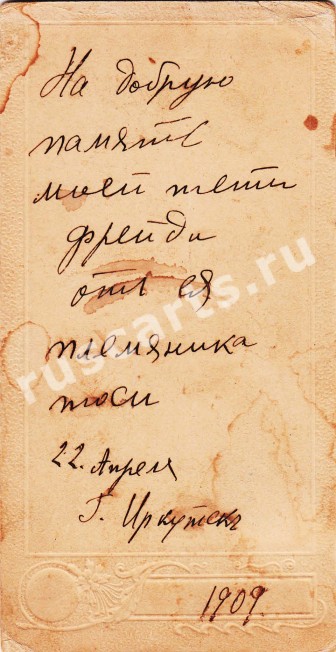 На добрую
память
моей тети
фрейди
отъ ея
племяника
тоси
22. Апреля
Г. Иркутскъ
1909
russarts.ru